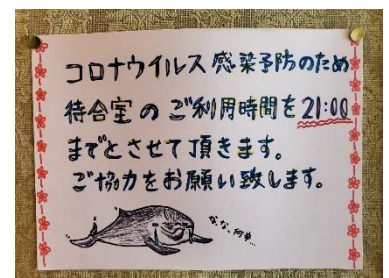 コロナウイルス感染予防のため
待合室のご利用時間を21:00
までとさせて頂きます。
ご協力をお願い致します。
な、な、何卒…